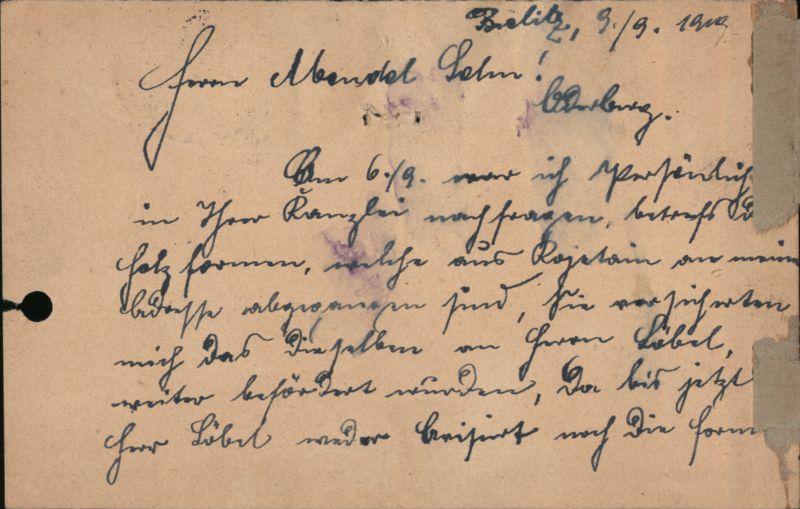 Bielitz, 9./9. 1919
Herrn Mendel Selm!
Oderberg.
Am 6./9. war ich Persönlich
in Ihrer Kanzlei nachfragen, betreffs
holzformen, welche aus Kojetain an meine
Adresse abgegangen sind, Sie versicherten
mich das dieselben an Herrn Löbel,
weiter befördert wurden, Da bis jetzt
Herr Löbel weder Avisirt noch die form